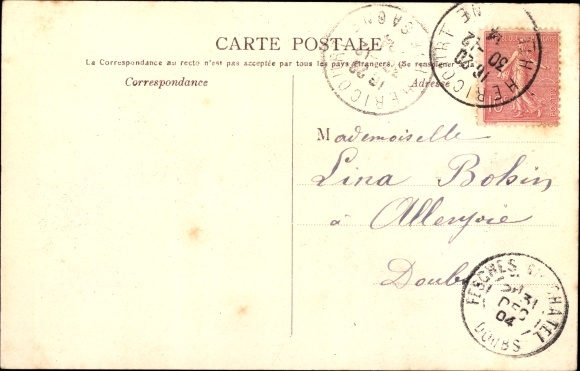 CARTE POSTALE
La Correspondance au recto n'est pas acceptée par tous les pays étrangers. (Se renseigner
Correspondance
Adresse
HÉRICOURT
16 20
30 -12
HERICOURT
Mademoiselle
Lina Bohin
à Allenjoie
Doubs
FESCHES LE CHATEL
31
DEC
04
DOUBS